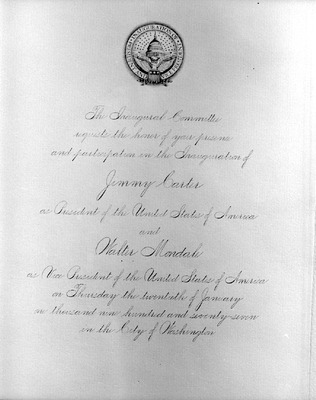 The Inaugural Committee
requests the honor of your presence
and participation in the Inauguration of
Jimmy Carter
as President of the United States of America
and
Walter Mondale
as Vice President of the United States of America
on Thursday the twentieth of January
thousand nine hundred and seventy-seven
in the City of Washington